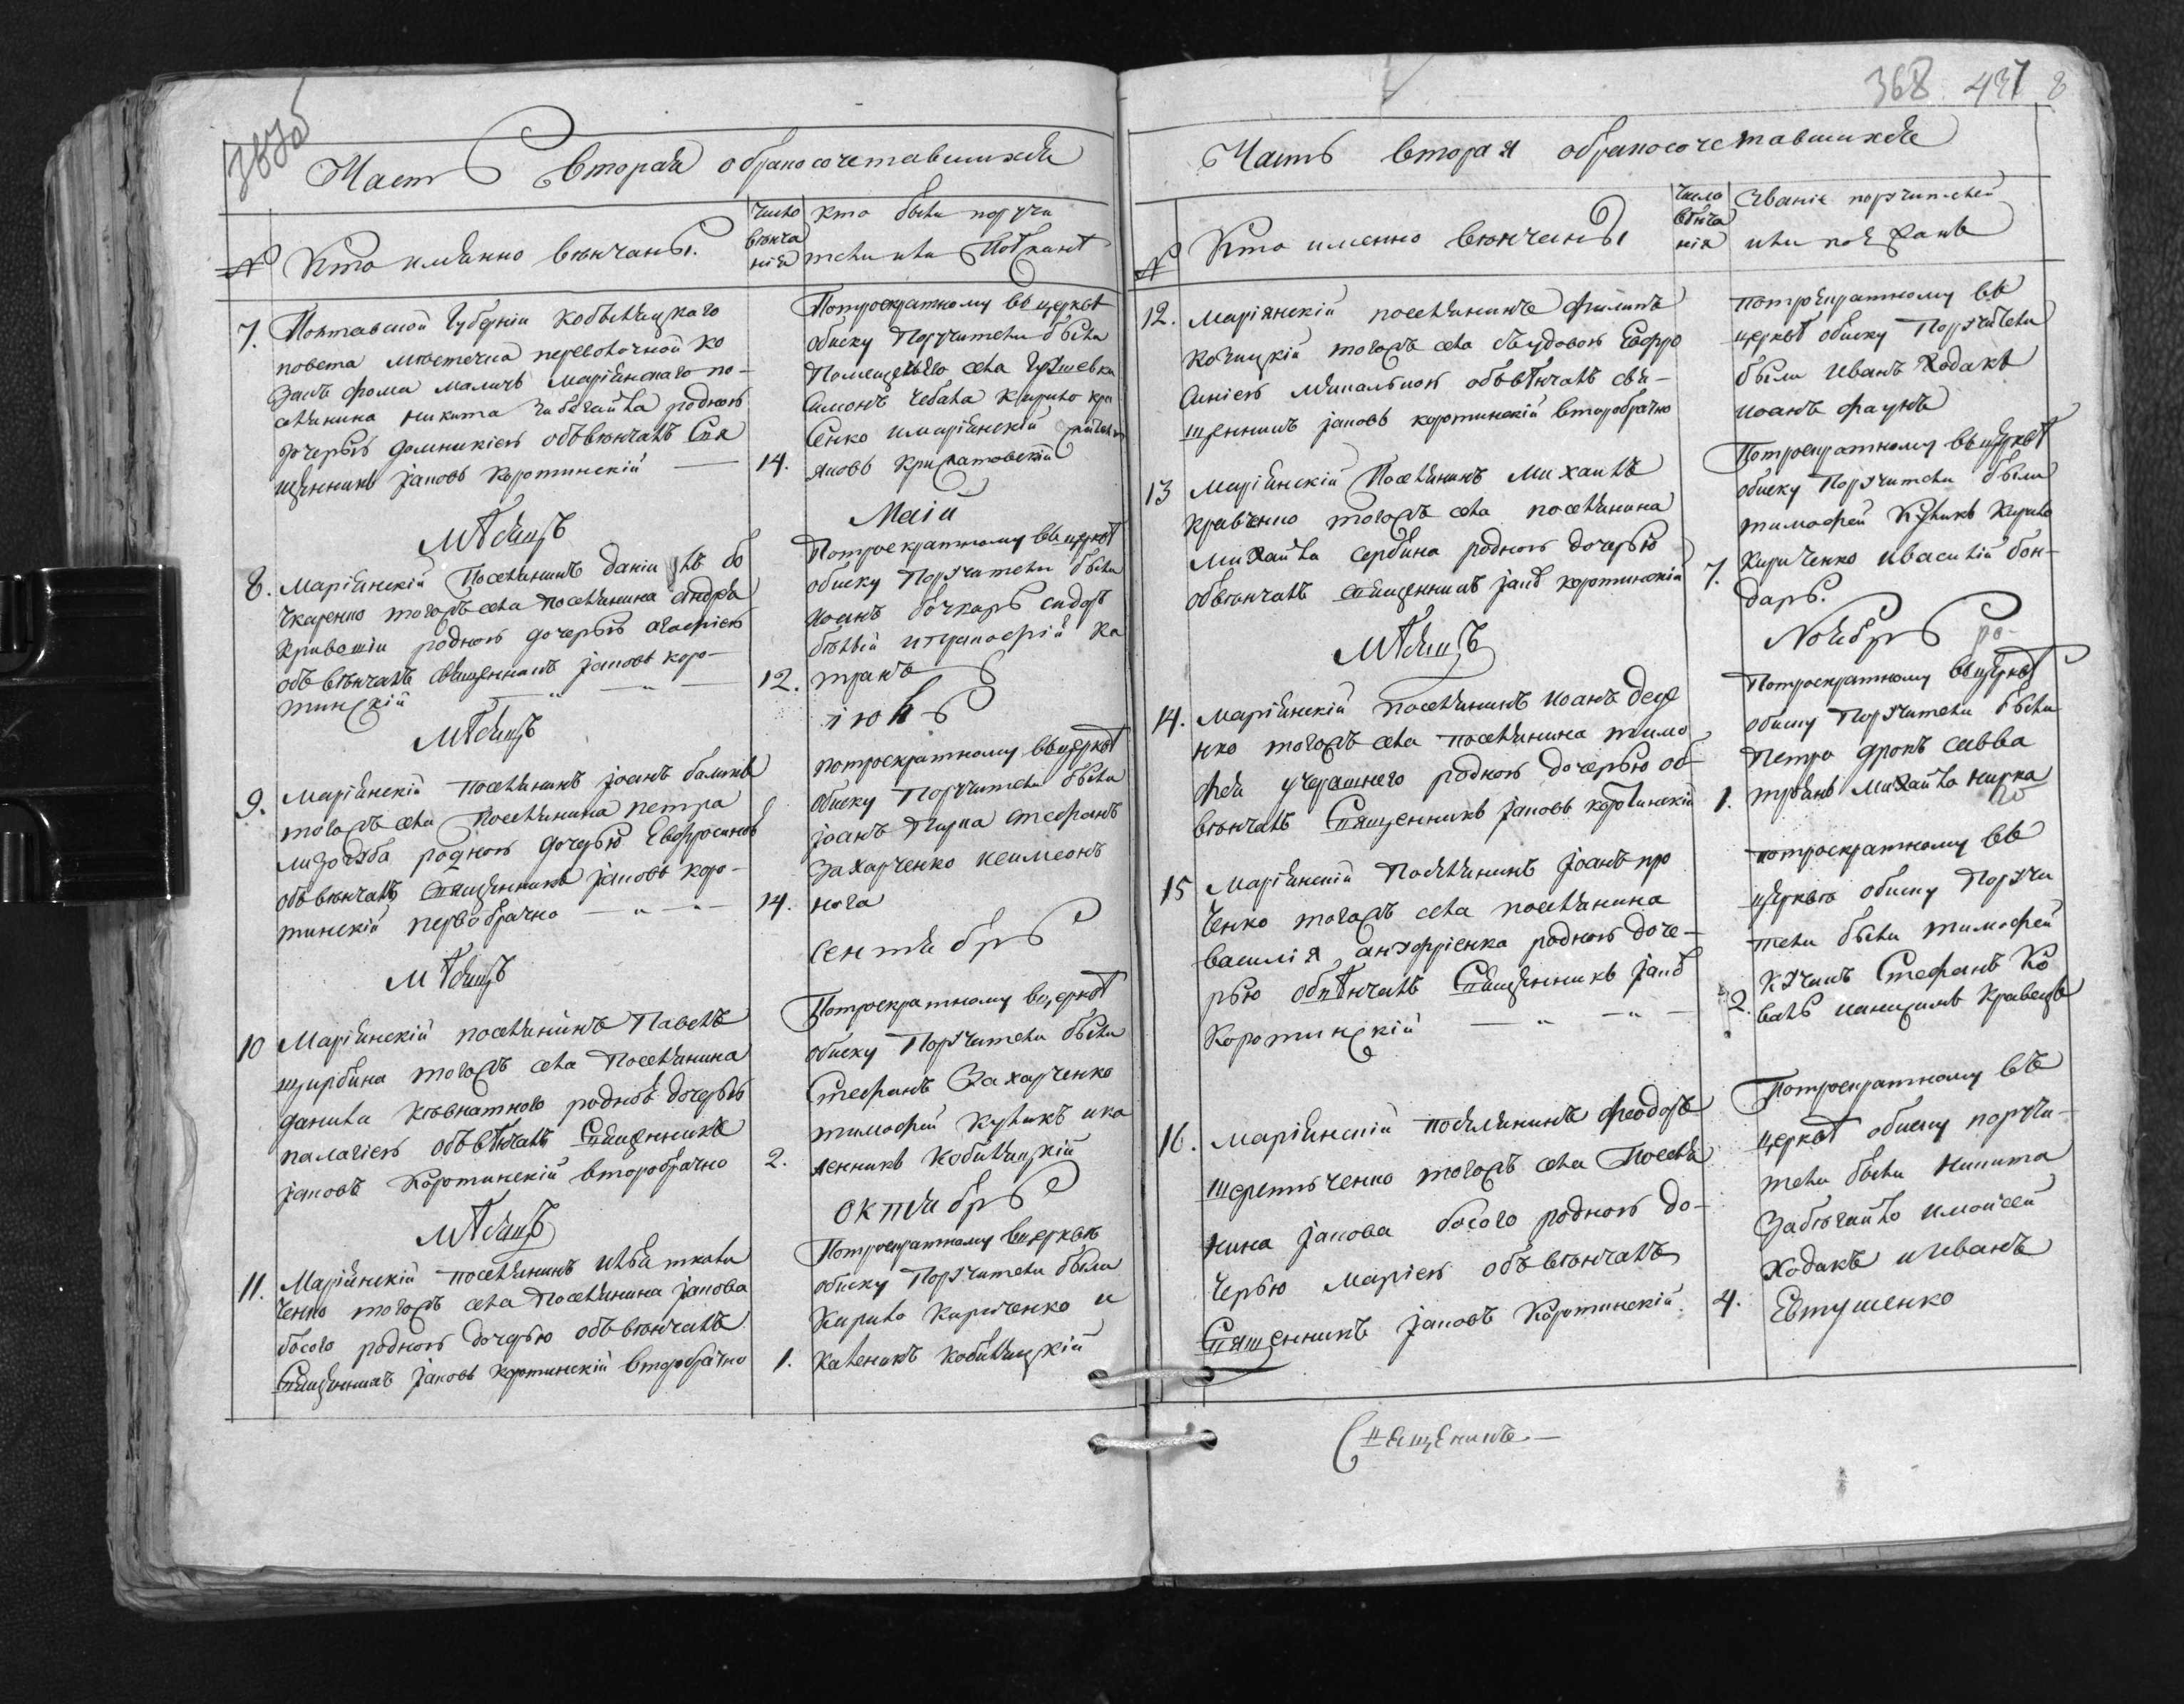 Часть вторая о бракосочетавшихся
№ Кто имянно венчаны.
число венчания
кто были поручители или Поезжане
7. Полтавской Губернии Кобыляцкаго
повета местечка переволочной Ко
закъ фома маличъ Маріинскаго по-
селянина никита
дочерью домникією обвѣнчалъ Свя
щенникъ Іаковъ Коротинскій
14.
Потроекратному въ церквѣ
обыску Поручители были
Помещичьего села
Симонъ Чебала Кирило
Сенко и маріинскій
яковъ
Мѣсяцъ Маій
8. Маріинскій Поселянинъ Даніилъ бо
чкаренко тогожъ села Поселянина андрея
Кривошіи родною дочерью агафіею
обвѣнчалъ священникъ Іаковъ Коро-
тинскій
12.
Потроекратному въ церквѣ
обыску Поручители были
Иоанъ бочкаръ сидоръ
бѣлый и трофій Ка
транъ
Мѣсяцъ іюнь
9. Маріинскій поселянинъ Іоанъ
тогожъ села Поселянина петра
лизогуба родною дочерью Евфросиніею
обвѣнчалъ священникъ Іаковъ Коро-
тинскій первобрачно
14.
потроекратному въ церквѣ
обыску Поручители были
Іоанъ стефанъ
Захарченко и симеонъ
нога
Мѣсяцъ сентябрь
10 Маріинскій поселянинъ Павелъ
щирбина тогожъ села Поселянина
данила родною дочерью
палагіею обвѣнчалъ священникъ
Іаковъ Коротинскій второбрачно
2.
Потроекратному въ церквѣ
обыску Поручители были
Стефанъ Захарченко
тимофей Куликъ и ка
ленникъ Кобиляцкій
Мѣсяцъ октябрь
11. Маріинскій поселянинъ илья ткали
ченко тогожъ села Поселянина Іакова
босого родною дочерью обвѣнчалъ
священникъ Іаковъ Коротинскій второбрачно
1.
Потроекратному въ церквѣ
обыску Поручители были
Кирило Кириченко и
Каленикъ Кобиляцкій
368 437 8
Часть вторая о бракосочетавшихся
№ Кто именно венчаны
число вѣнчанія
Званіе поручителей
или поезжанъ
12. маріянскій поселянинъ филипъ
тогожъ села съ вдовою Евфро
синіею обвѣнчалъ свя-
щенникъ Іаковъ коротинскій второбрачно
потроекратному въ
церквѣ обыску Поручители
были Иванъ Ходакъ
иоанъ
13 Маріинскій Поселянинъ Михаилъ
Кравченко тогожъ села поселянина
Михайла Сербина родною дочерью
обвѣнчалъ священникъ Іаковъ коротинскій
7.
Потроекратному въ церквѣ
обыску Поручители были
тимофей Куликъ Кирило
Кириченко и василій бон-
даръ.
Мѣсяцъ Ноябрь
14. Маріинскій поселянинъ иоанъ
нко тогожъ села поселянина тимо
фея родною дочерью об-
вѣнчалъ Священникъ Іаковъ коротинскій
1.
Потроекратному въ церквѣ
обыску Поручители были
Петро савва
троянъ Михайло
15 Маріинскій Поселянинъ Іоанъ про
ченко тогожъ села поселянина
василія родною доче-
рью обвѣнчалъ Священникъ Іаковъ
Коротинскій
2.
потроекратному въ
церквѣ обыску Поручи
тели были тимофей
Стефанъ Ко
валь Кравецъ
16. Маріинскій поселянинъ феодоръ
тогожъ села Поселя
нина Іакова босого родною до-
черью Маріею обвѣнчалъ
Священникъ Іаковъ Коротинскій.
4.
Потроекратному въ
церквѣ обыску поручи-
тели были Никита
и моисей
Ходакъ и Иванъ
Евтушенко
Священникъ